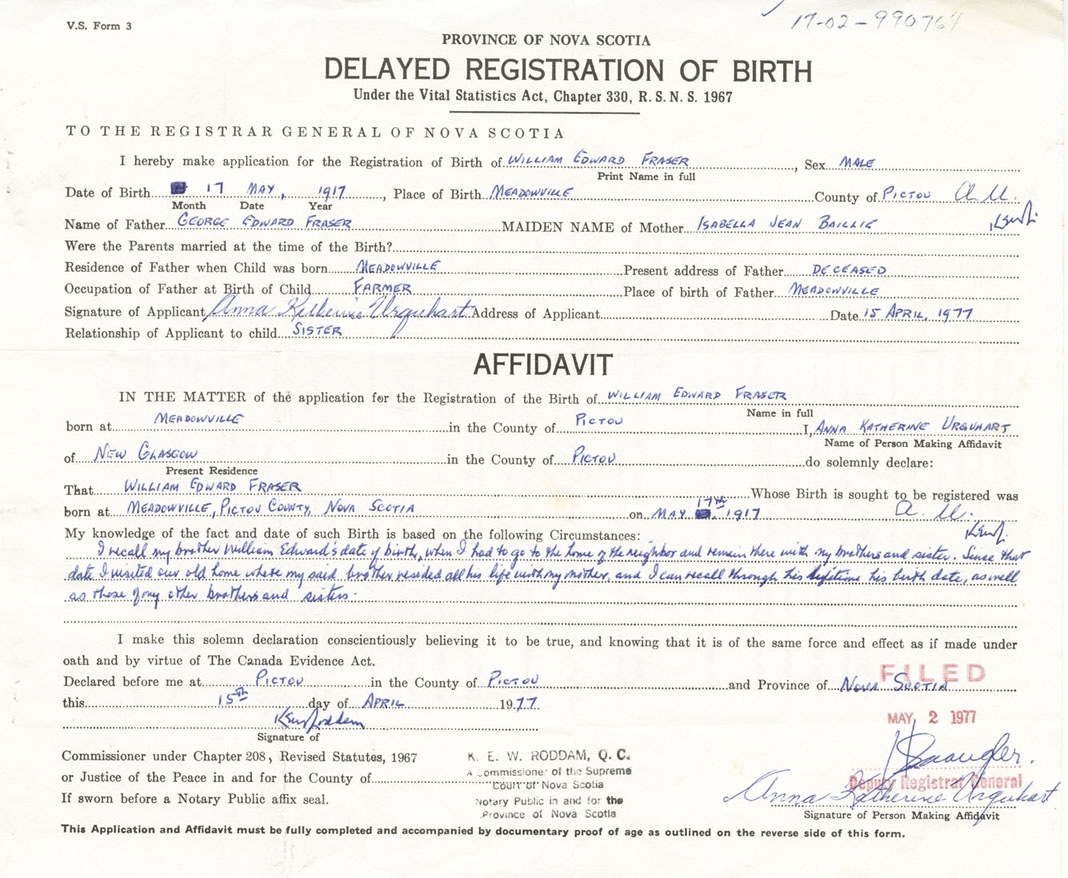 V.S. Form 3
17-02-990764
PROVINCE OF NOVA SCOTIA
DELAYED REGISTRATION OF BIRTH
Under the Vital Statistics Act, Chapter 330, R. S. N. S. 1967
TO THE REGISTRAR GENERAL OF NOVA SCOTIA
I hereby make application for the Registration of Birth of WILLIAM EDWARD FRASER, Sex MALE
Print Name in full
Date of Birth 17 MAY, 1917, Place of Birth MEADOWVILLE County of PICTOU A.U.
Month Date Year
Name of Father GEORGE EDWARD FRASER MAIDEN NAME of Mother ISABELLA JEAN BAILLIE
Were the Parents married at the time of the Birth?
Residence of Father when Child was born MEADOWVILLE Present address of Father DECEASED
Occupation of Father at Birth of Child FARMER Place of birth of Father MEADOWVILLE
Signature of Applicant Anna Katherine Urquhart Address of Applicant Date 15 APRIL, 1977
Relationship of Applicant to child SISTER
AFFIDAVIT
IN THE MATTER of the application for the Registration of the Birth of WILLIAM EDWARD FRASER
Name in full
born at MEADOWVILLE in the County of PICTOU I, ANNA KATHERINE URQUHART
Name of Person Making Affidavit
of NEW GLASGOW in the County of PICTOU do solemnly declare:
Present Residence
That WILLIAM EDWARD FRASER Whose Birth is sought to be registered was
born at MEADOWVILLE, PICTOU COUNTY, NOVA SCOTIA on MAY 17th, 1917 A.U.
My knowledge of the fact and date of such Birth is based on the following Circumstances:
I recall my brother William Edward's date of birth, when I had to go to the home of the neighbor and remain there with my brothers and sister. Since that
date I visited our old home where my said brother resided all his life with my mother, and I can recall through his lifetime his birth date, as well
as those of my other brothers and sisters.
I make this solemn declaration conscientiously believing it to be true, and knowing that it is of the same force and effect as if made under
oath and by virtue of The Canada Evidence Act.
Declared before me at PICTOU in the County of PICTOU and Province of NOVA SCOTIA
FILED
this 15th day of APRIL 1977
MAY 2 1977
KEWRoddam
Signature of
Commissioner under Chapter 208, Revised Statutes, 1967
or Justice of the Peace in and for the County of
If sworn before a Notary Public affix seal.
K. E. W. RODDAM, Q. C.
A Commissioner of the Supreme
Court of Nova Scotia
Notary Public in and for the
Province of Nova Scotia
Deputy Registrar General
Anna Katherine Urquhart
Signature of Person Making Affidavit
This Application and Affidavit must be fully completed and accompanied by documentary proof of age as outlined on the reverse side of this form.